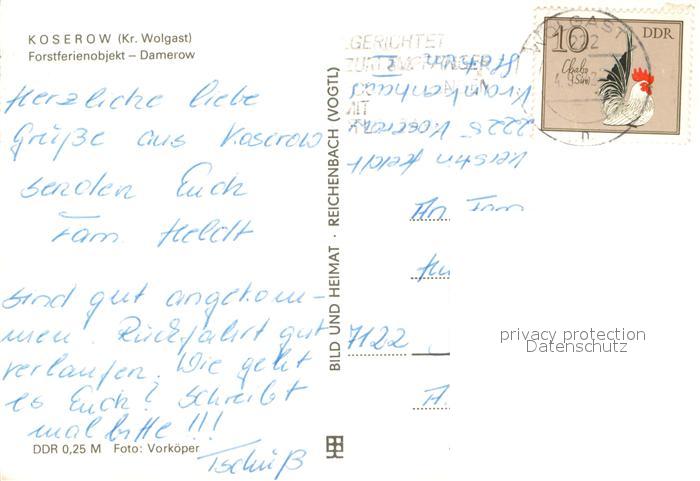 KOSEROW (Kr. Wolgast)
Forstferienobjekt – Damerow
Herzliche liebe
Grüße aus Koserow
senden Euch
Fam. Heldt
sind gut angekom-
men. Rückfahrt gut
verlaufen. Wie geht
es Euch? Schreibt
mal bitte !!!
Tschüß
DDR 0,25 M Foto: Vorköper
BILD UND HEIMAT · REICHENBACH (VOGTL)
GERICHTET
WOLGAST 1
222
10
DDR
Chabo
Kerstin Heldt
2225 Koserow
Krankenhaus
An Fam
7122
privacy protection
Datenschutz